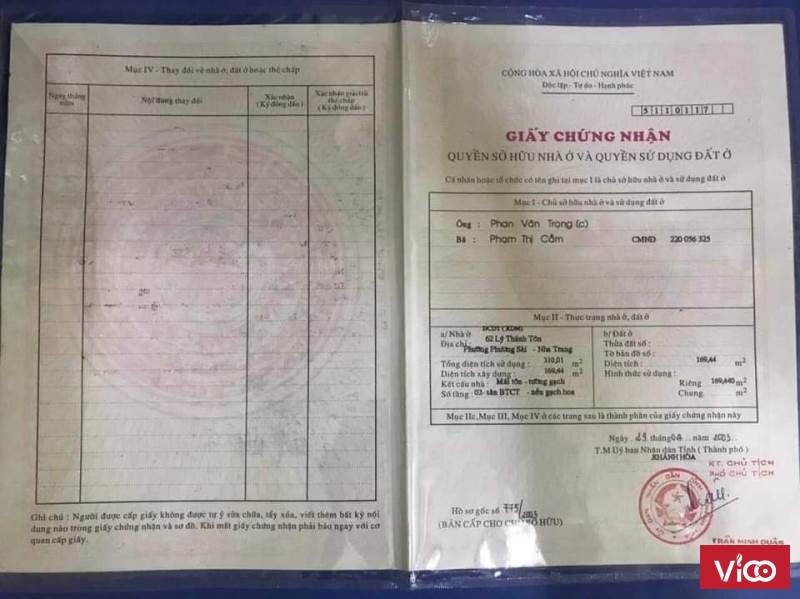 Mục IV - Thay đổi về nhà ở, đất ở hoặc thế chấp
Ngày tháng năm
Nội dung thay đổi
Xác nhận (Ký đóng dấu)
Xác nhận giải trừ thế chấp (Ký đóng dấu)
Ghi chú : Người được cấp giấy không được tự ý sửa chữa, tẩy xóa, viết thêm bất kỳ nội
dung nào trong giấy chứng nhận và sơ đồ. Khi mất giấy chứng nhận phải báo ngay với cơ
quan cấp giấy.
CỘNG HÒA XÃ HỘI CHỦ NGHĨA VIỆT NAM
Độc lập - Tự do - Hạnh phúc
5110117
GIẤY CHỨNG NHẬN
QUYỀN SỞ HỮU NHÀ Ở VÀ QUYỀN SỬ DỤNG ĐẤT Ở
Cá nhân hoặc tổ chức có tên ghi tại mục I là chủ sở hữu nhà ở và sử dụng đất ở
Mục I - Chủ sở hữu nhà ở và sử dụng đất ở
Ông : Phan Văn Trọng (c)
Bà : Phạm Thị Cẩm CMND 220 056 325
Mục II - Thực trạng nhà ở, đất ở
a/ Nhà ở
Địa chỉ : 62 Lý Thánh Tôn
Phường Phương Sài - Nha Trang
Tổng diện tích sử dụng : 310,01 m2
Diện tích xây dựng : 169,44 m2
Kết cấu nhà : Mái tôn - tường gạch
Số tầng : 02 - sàn BTCT - nền gạch hoa
b/ Đất ở
Thửa đất số :
Tờ bản đồ số :
Diện tích : 169,44 m2
Hình thức sử dụng :
Riêng 169,440 m2
Chung m2
Mục IIc, Mục III, Mục IV ở các trang sau là thành phần của giấy chứng nhận này
Ngày 29 tháng 04 năm 2003
T.M Uỷ ban Nhân dân Tỉnh ( Thành phố )
KHÁNH HÒA
KT. CHỦ TỊCH
PHÓ CHỦ TỊCH
Hồ sơ gốc số 775/2003
(BẢN CẤP CHO CHỦ SỞ HỮU)
TRẦN MINH DUÂN
Vico